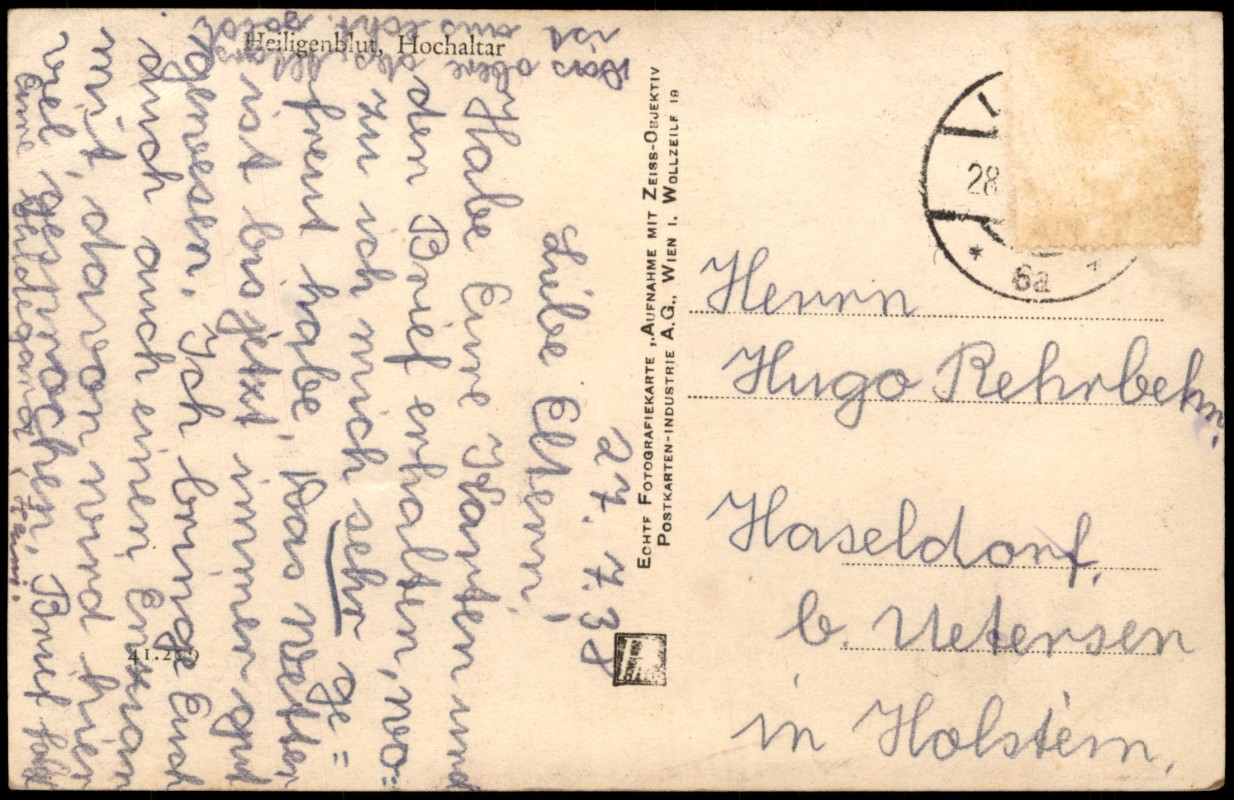 Heiligenblut, Hochaltar
27. 7. 38
Liebe Eltern!
Habe Eure Karten und
den Brief erhalten, wo=
zu ich mich sehr ge=
freut habe. Das Wetter
ist bis jetzt immer gut
gewesen. Ich bringe Euch
auch einen Enzian
mit, davon wird hier
viel gesprochen. Brief folgt
Eure Hildegard,
Das obere
ist aus echt. Gold
41.259
ECHTE FOTOGRAFIEKARTE „AUFNAHME MIT ZEISS-OBJEKTIV
POSTKARTEN-INDUSTRIE A.G., WIEN I. WOLLZEILE 19
28
6a
Herrn
Hugo Rehrbehn.
Haseldorf,
b. Uetersen
in Holstein.